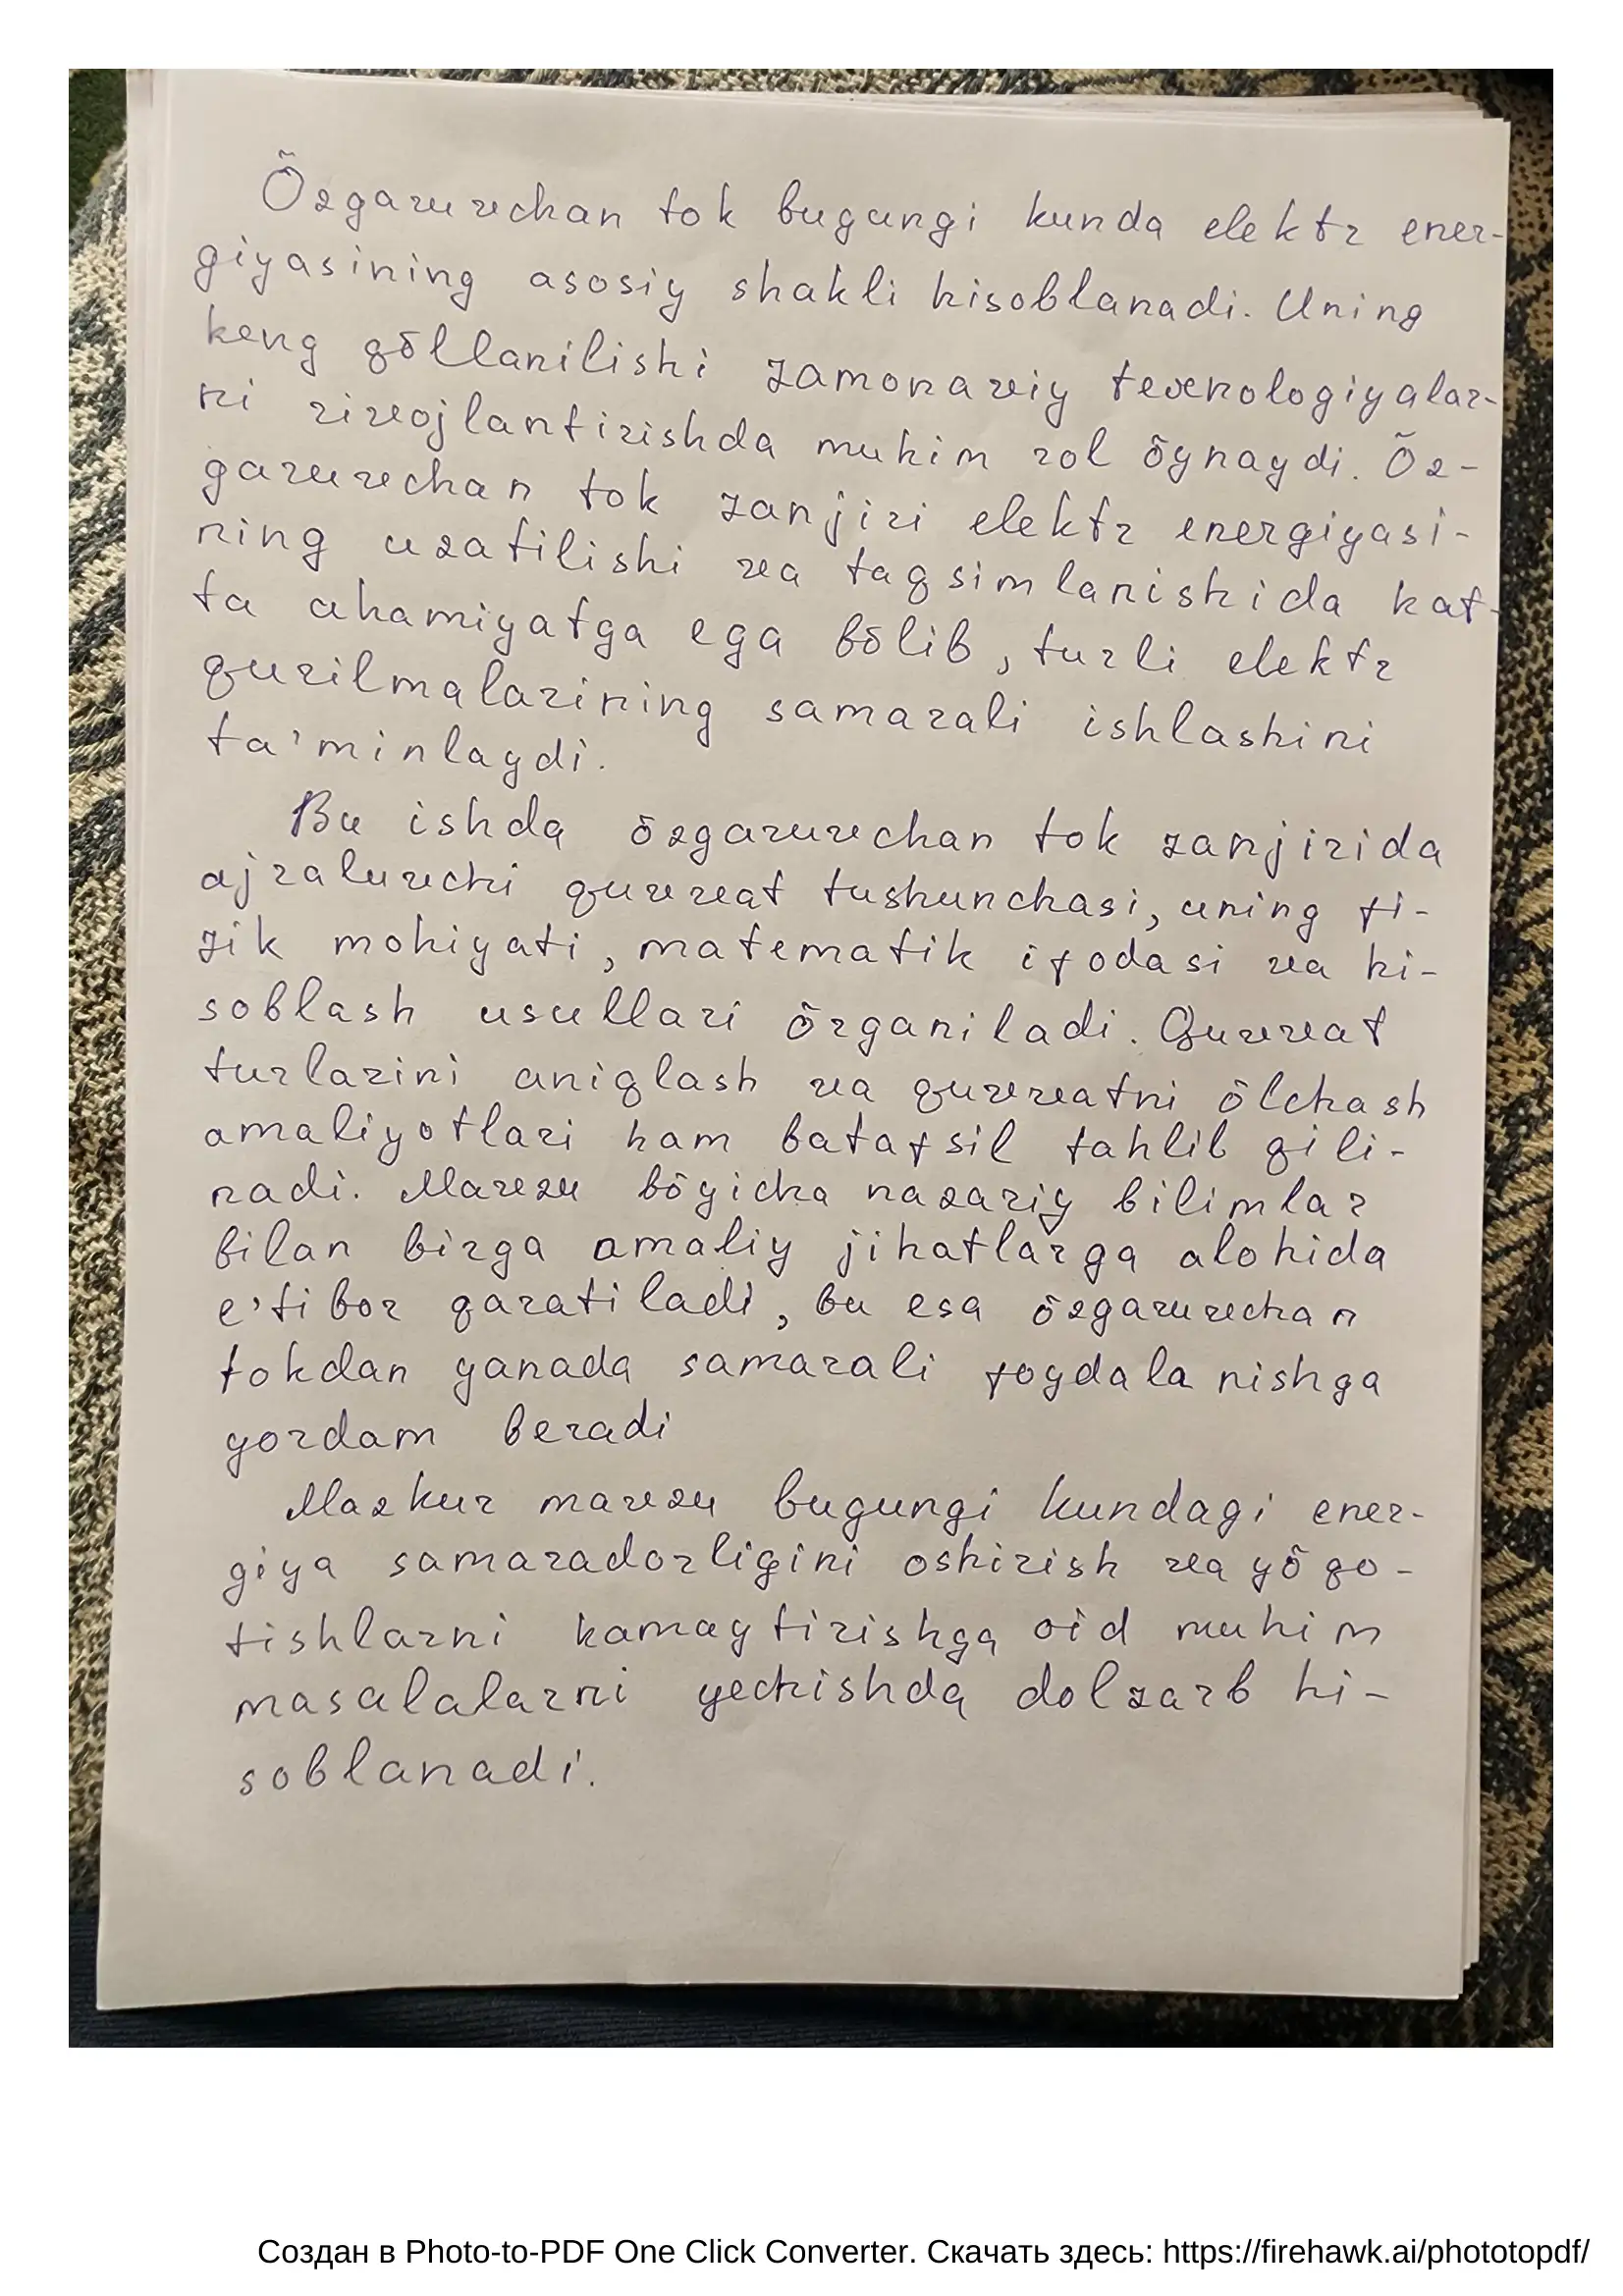 Õzgaruvchan tok bugungi kunda elektr ener-
giyasining asosiy shakli hisoblanadi. Uning
keng qõllanilishi zamonaviy texnologiyalar-
ni rivojlantirishda muhim rol õynaydi. Õz-
garuvchan tok zanjiri elektr energiyasi-
ning uzatilishi va taqsimlanishida kat-
ta ahamiyatga ega bõlib, turli elektr
qurilmalarining samarali ishlashini
ta'minlaydi.
Bu ishda õzgaruvchan tok zanjirida
ajraluvchi quvvat tushunchasi, uning fi-
zik mohiyati, matematik ifodasi va hi-
soblash usullari õrganiladi. Quvvat
turlarini aniqlash va quvvatni õlchash
amaliyotlari ham batafsil tahlil qili-
nadi. Mavzu bõyicha nazariy bilimlar
bilan birga amaliy jihatlarga alohida
e'tibor qaratiladi, bu esa õzgaruvchan
tokdan yanada samarali foydalanishga
yordam beradi
Mazkur mavzu bugungi kundagi ener-
giya samaradorligini oshirish va yõqo-
tishlarni kamaytirishga oid muhim
masalalarni yechishda dolzarb hi-
soblanadi.
Создан в Photo-to-PDF One Click Converter. Скачать здесь: https://firehawk.ai/phototopdf/